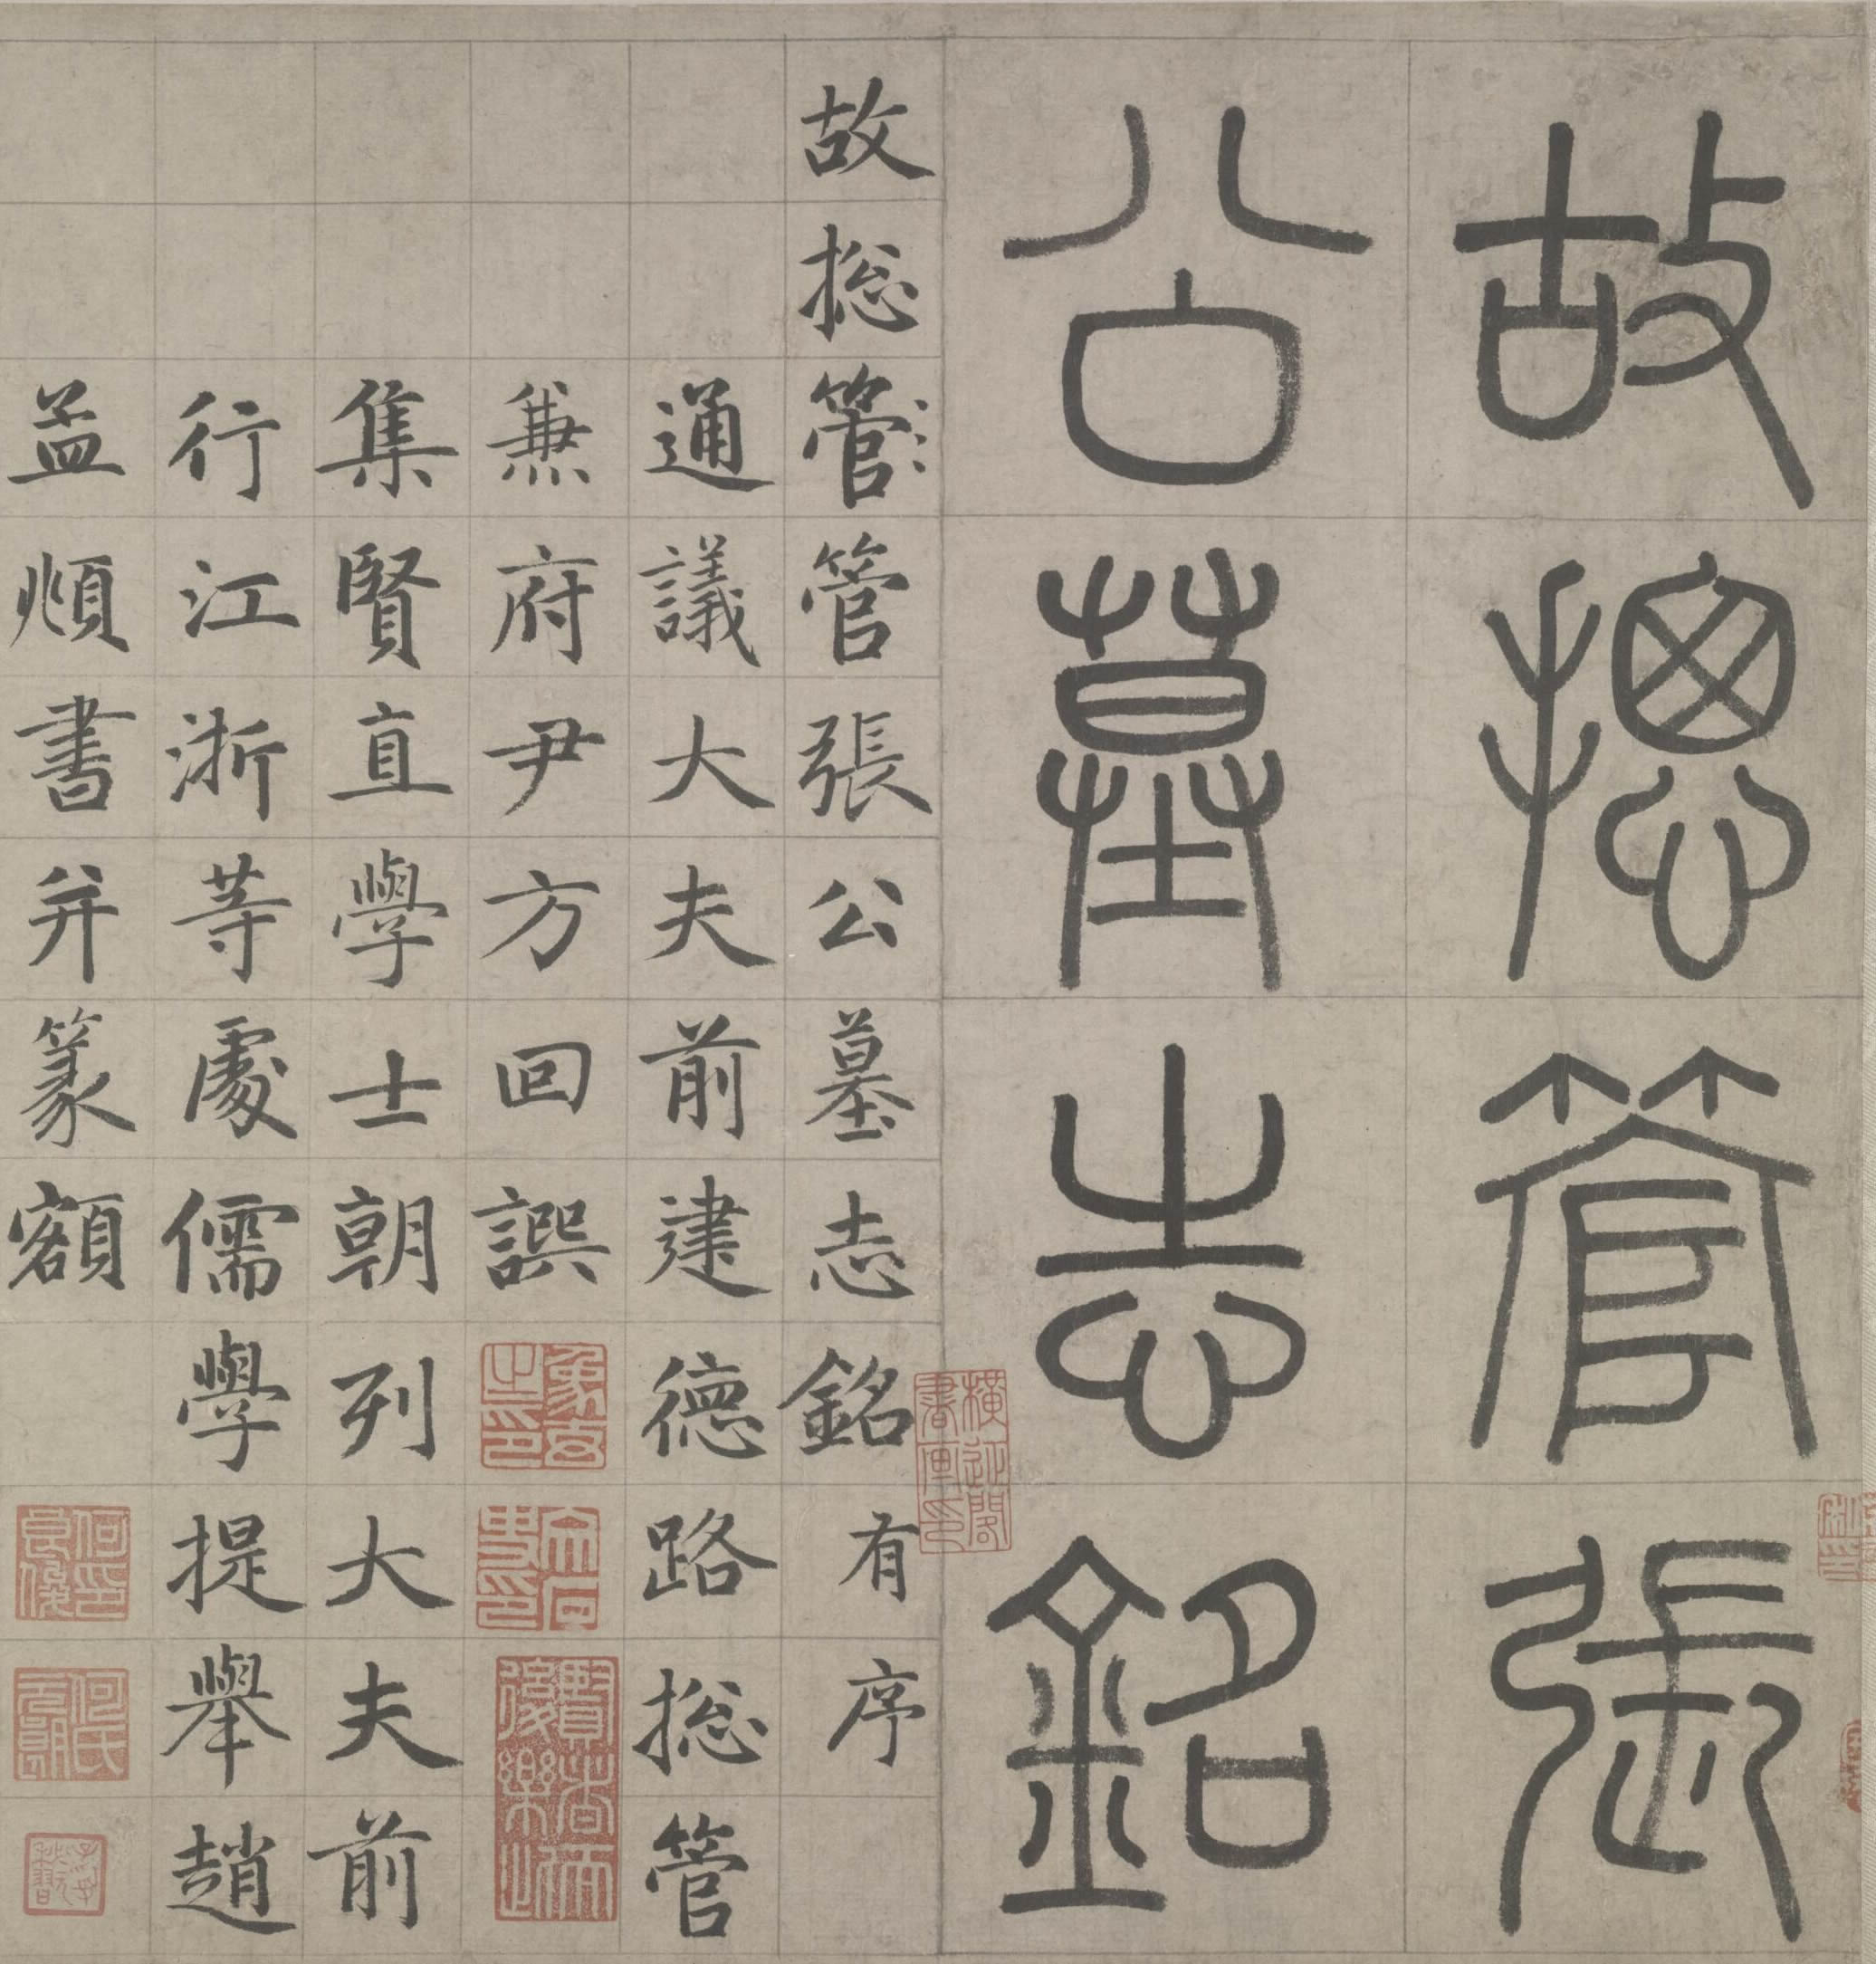 故揔管張
公墓志銘
故揔管管張公墓志銘有序
通議大夫前建德路揔管
兼府尹方回譔
集賢直學士朝列大夫前
行江浙等處儒學提舉趙
孟頫書并篆額
何氏元朗